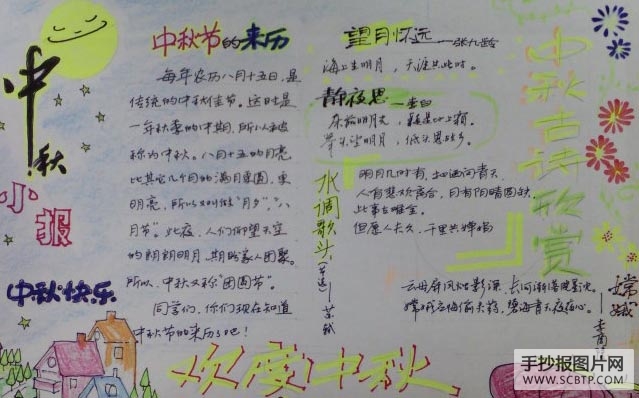 中秋
小报
中秋快乐
中秋节的来历
每年农历八月十五日,是
传统的中秋佳节。这时是
一年秋季的中期,所以被
称为中秋。八月十五的月亮
比其它几个月的满月更圆,更
明亮,所以又叫做“月夕”,“八
月节”。此夜,人们仰望天空
的朗朗明月,期盼家人团聚。
所以,中秋又称“团圆节”。
同学们,你们现在知道
中秋节的来历了吧!
望月怀远——张九龄
海上生明月,天涯共此时。
静夜思——李白
床前明月光,疑是地上霜。
举头望明月,低头思故乡。
水调歌头(节选)——苏轼
明月几时有,把酒问青天
人有悲欢离合,月有阴晴圆缺,
此事古难全。
但愿人长久,千里共婵娟
嫦娥——李商
云母屏风烛影深,长河渐落晓星沉。
嫦娥应悔偷灵药,碧海青天夜夜心。
中秋古诗欣赏
欢度中秋
手抄报图片网
WWW.SCBTP.COM